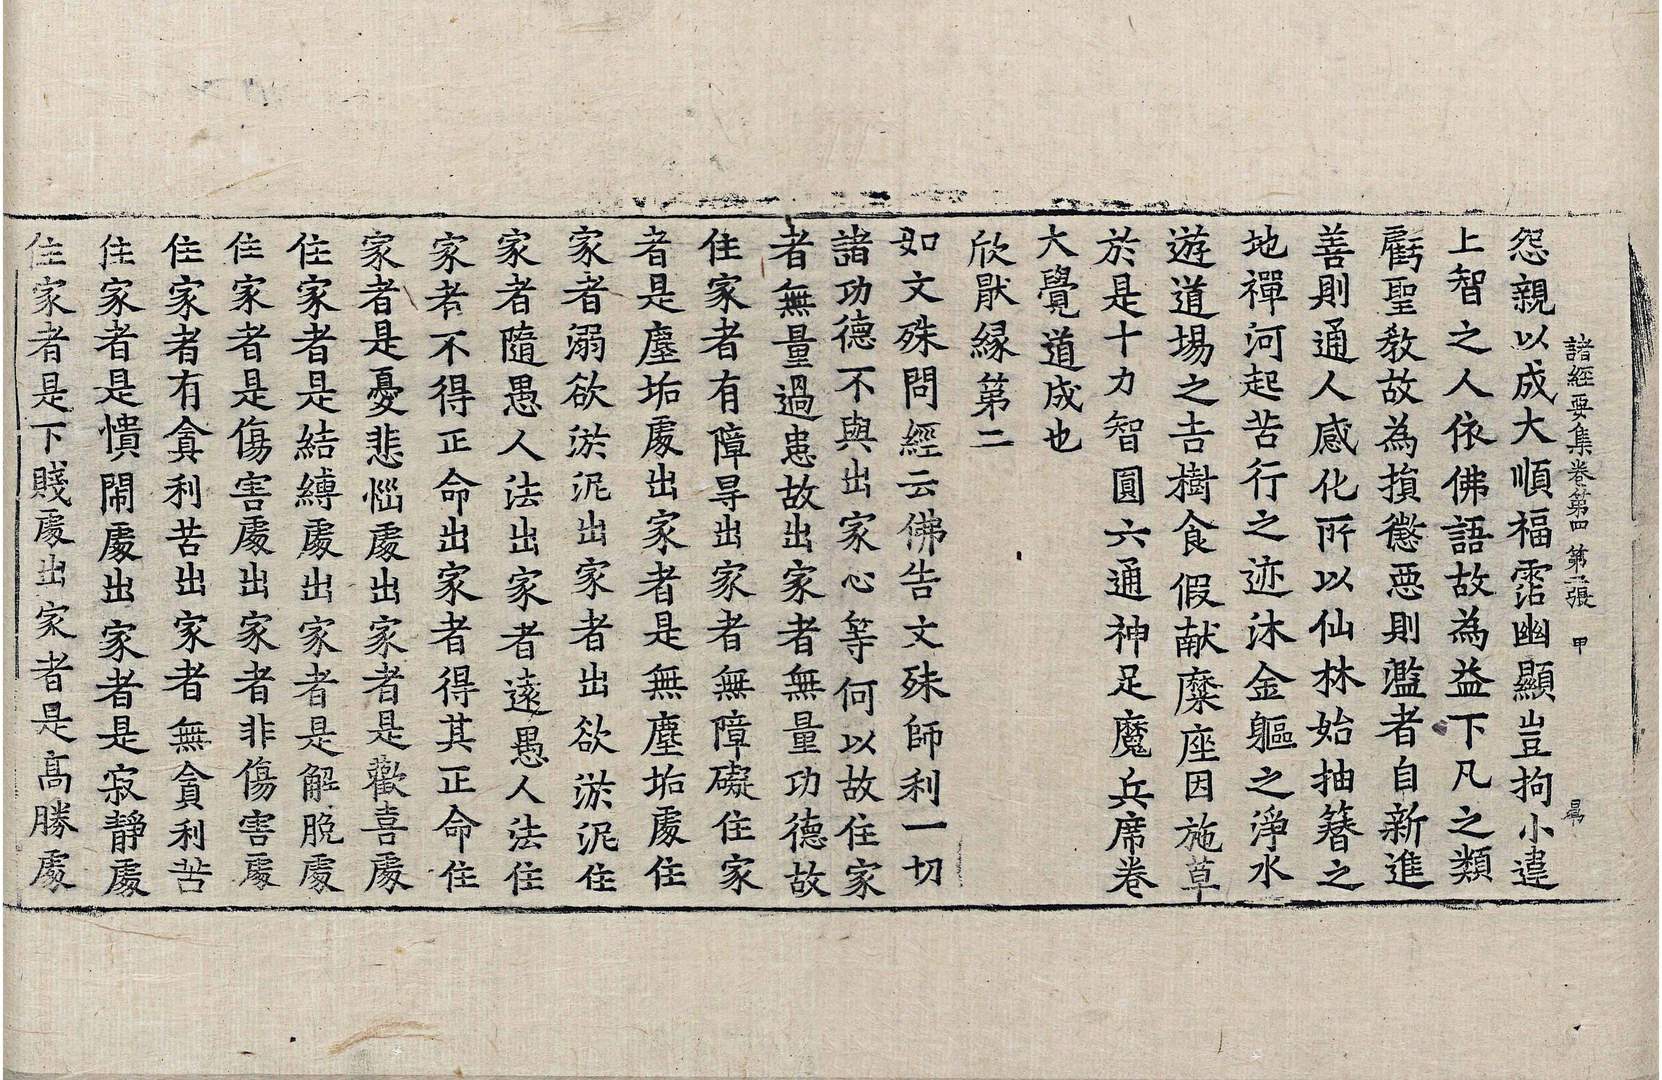 諸經要集卷第四 第二張 甲
怨親以成大順福霑幽顯豈拘小違
上智之人依佛語故為益下凡之類
虧聖教故為損懲惡則濫者自新進
善則通人感化所以仙林始抽簪之
地禪河起苦行之迹沐金軀之淨水
遊道場之吉樹食假献糜座因施草
於是十力智圓六通神足魔兵席卷
大覺道成也
欣猒縁第二
如文殊問經云佛告文殊師利一切
諸功德不與出家心等何以故住家
者無量過患故出家者無量功德故
住家者有障㝵出家者無障礙住家
者是塵垢處出家者是無塵垢處住
家者溺欲淤泥出家者出欲淤泥住
家者隨愚人法出家者遠愚人法住
家者不得正命出家者得其正命住
家者是憂悲惱處出家者是歡喜處
住家者是結縛處出家者是解脫處
住家者是傷害處出家者非傷害處
住家者有貪利苦出家者無貪利苦
住家者是憒閙處出家者是寂靜處
住家者是下賤處出家者是高勝處